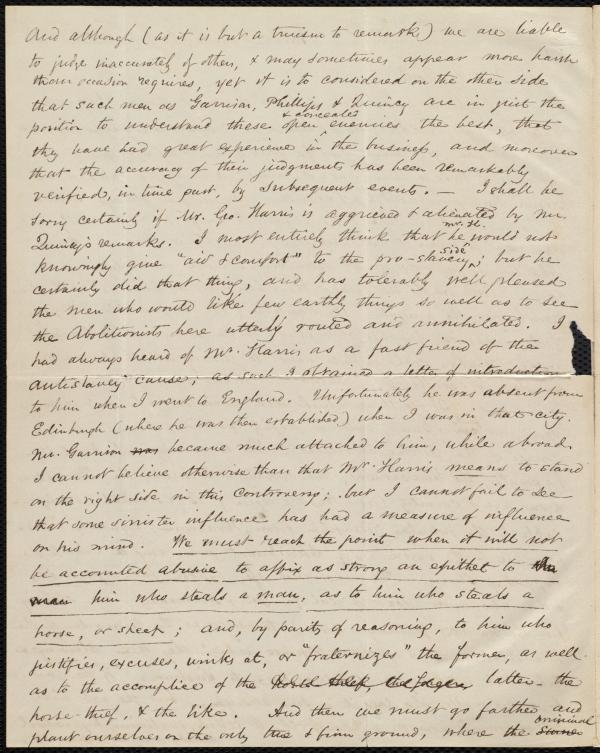 And although (as it is but a truism to remark) we are liable
to judge inaccurately of others, & may sometimes appear more harsh
than occasion requires, yet it is to considered on the other side
that such men as Garrison, Phillips & Quincy are in just the
position to understand these open & concealed enemies the best, that
they have had great experience in the business, and moreover
that the accuracy of their judgments has been remarkably
verified, in time past, by subsequent events. — I shall be
sorry certainly if Mr. Geo. Harris is aggrieved & alienated by Mr.
Quincy's remarks. I most entirely think that he Mr. H. would not
knowingly give "aid & comfort" to the pro-slavery side; but he
certainly did that thing, and has tolerably well pleased
the men who would like few earthly things so well as to see
the Abolitionists here utterly routed and annihilated. I
had always heard of Mr. Harris as a fast friend of the
antislavery cause; as such I obtained a letter of introduction
to him when I went to England. Unfortunately he was absent from
Edinburgh (where he was then established) when I was in that city.
Mr. Garrison was became much attached to him, while abroad.
I cannot believe otherwise than that Mr. Harris means to stand
on the right side in this controversy; but I cannot fail to see
that some sinister influence has had a measure of influence
on his mind. We must reach the point when it will not
be accounted abusive to affix as strong an epithet to the
man him who steals a man, as to him who steals a
horse, or sheep; and, by parity of reasoning, to him who
justifies, excuses, winks at, or "fraternizes" the former, as well
as to the accomplice of the latter – the
horse-thief, & the like. And then we must go farther and
plant ourselves on the only true & firm ground, where the criminal